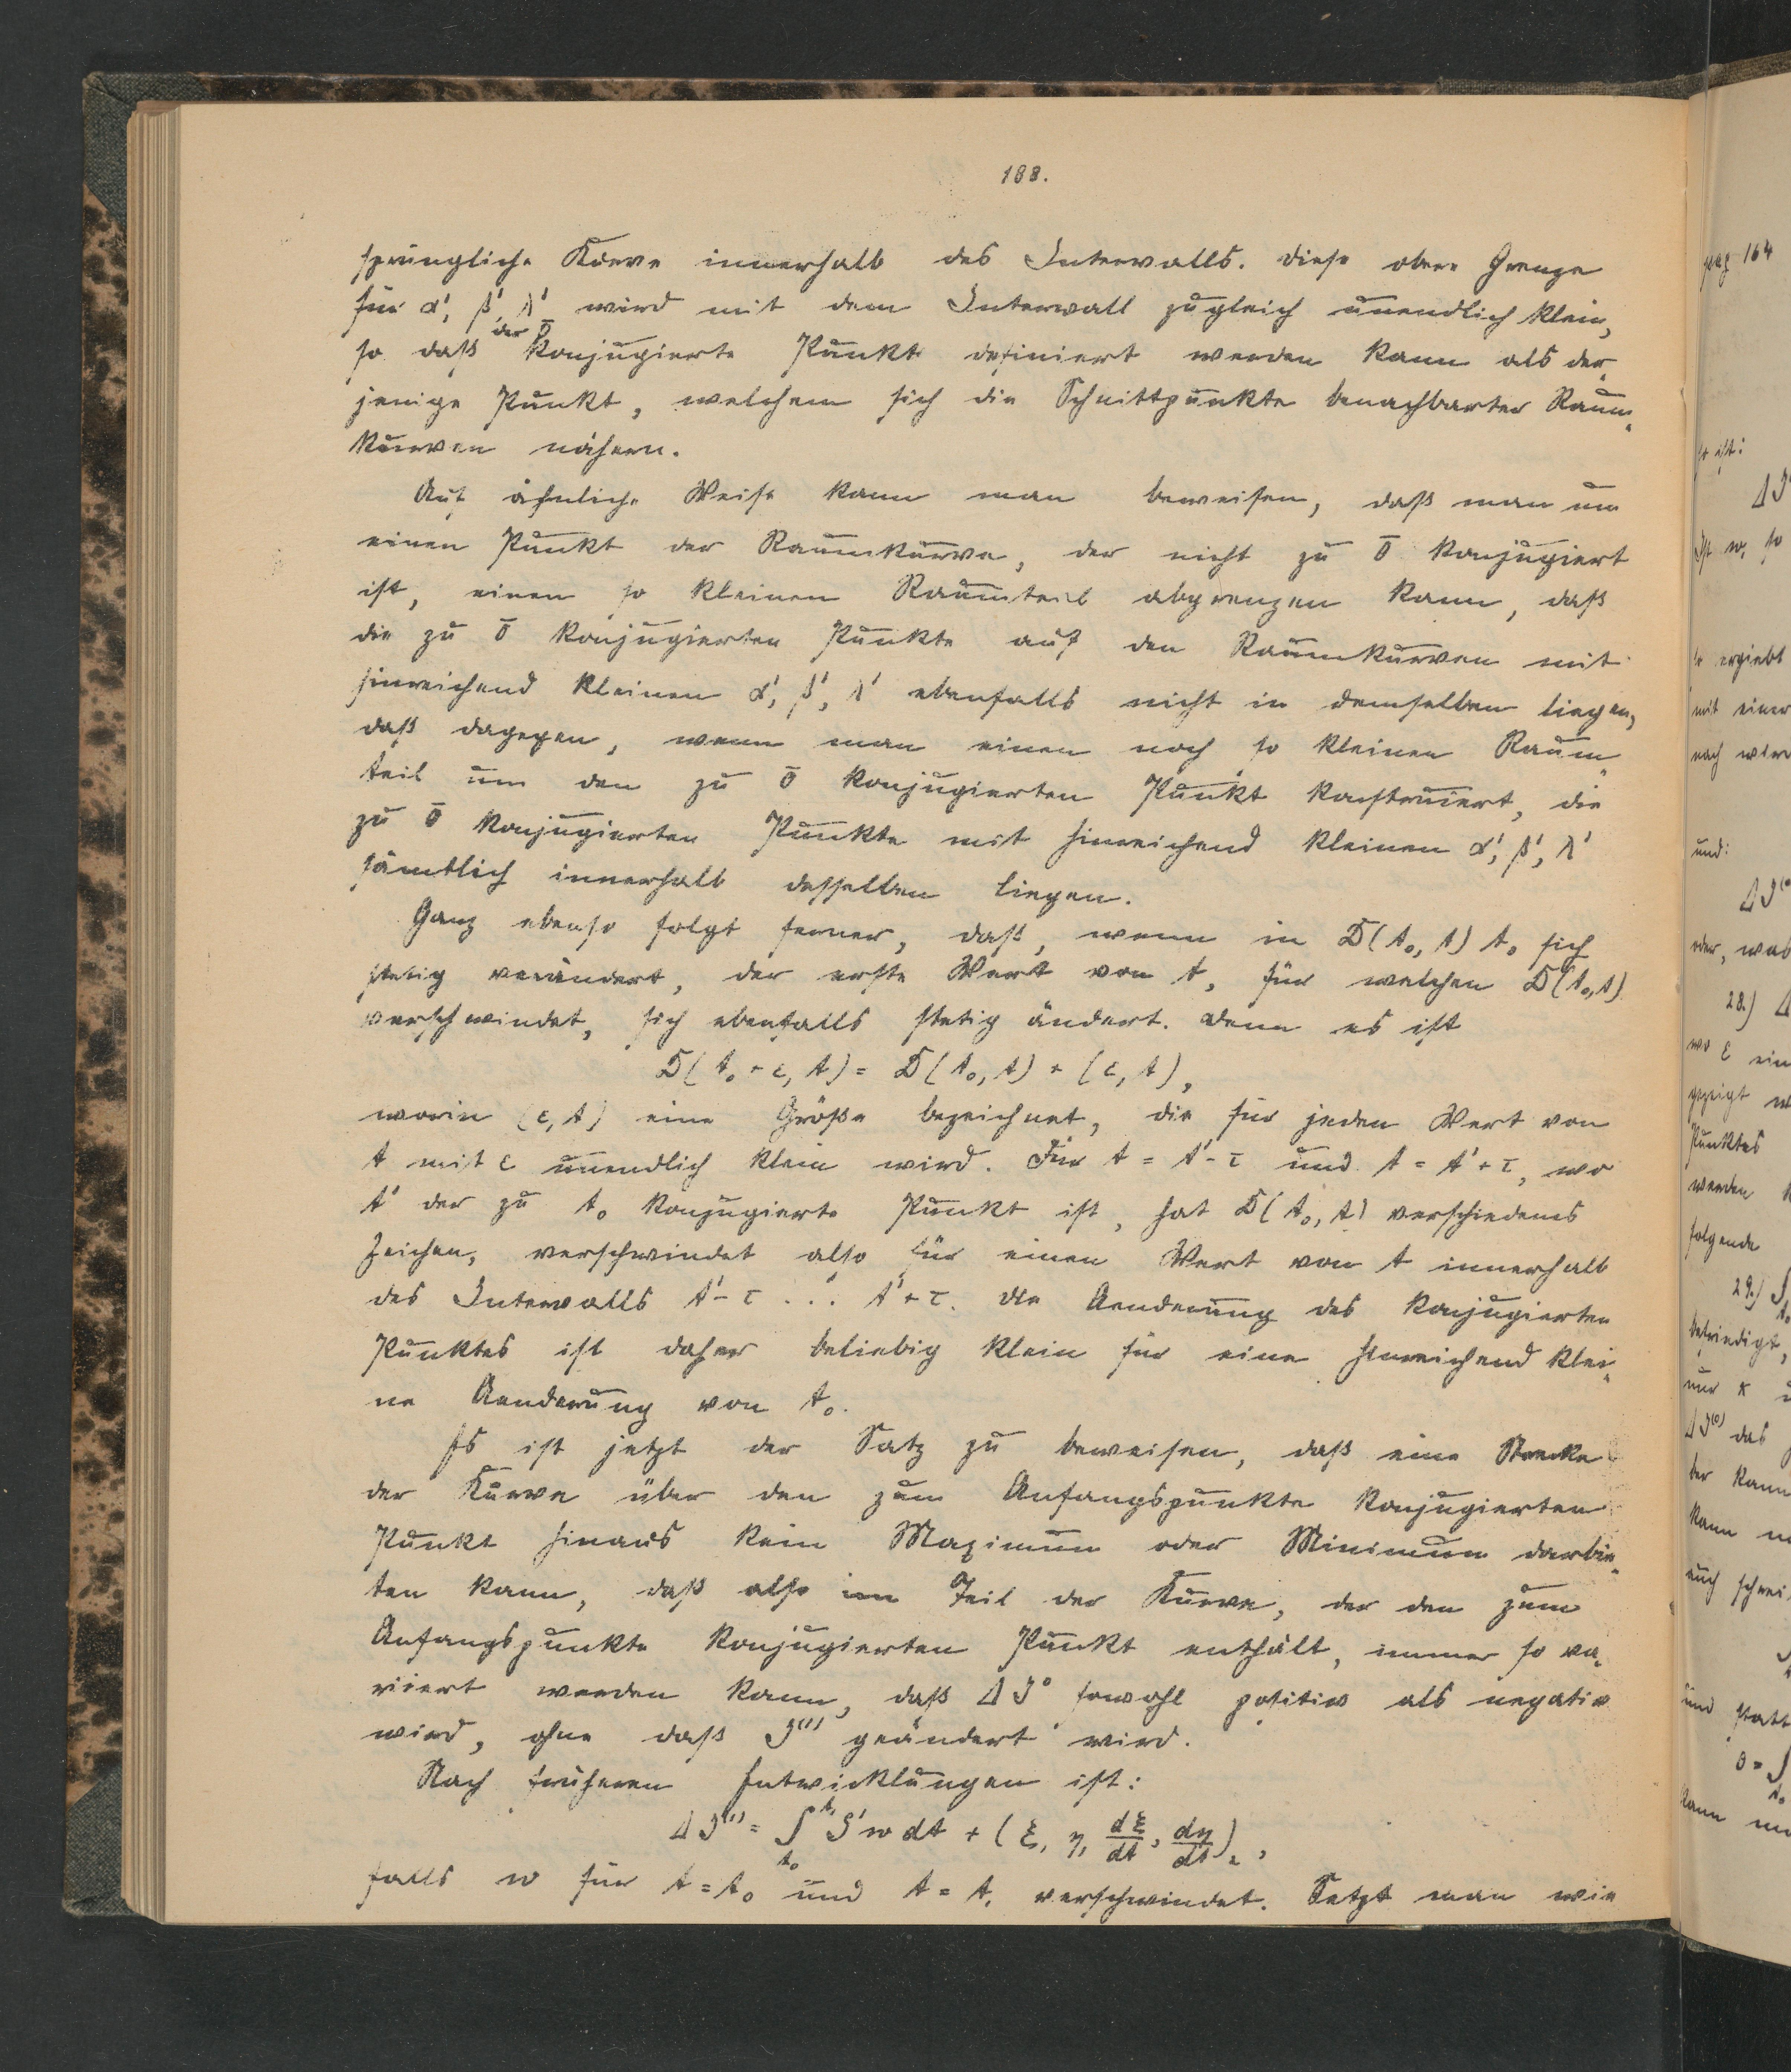 188.
sprüngliche Kurve innerhalb des Intervalls. Diese obere Grenze
für α', β', λ' wird mit dem Intervall zugleich unendlich klein,
so daß der zu 0 konjugierte Punkt definiert werden kann als der-
jenige Punkt, welchem sich die Schnittpunkte benachbarter Raum-
kurven nähern.
Auf ähnliche Weise kann man beweisen, daß man um
einen Punkt der Raumkurve, der nicht zu 0̄ konjugiert
ist, einen so kleinen Raumteil abgrenzen kann, daß
die zu 0̄ konjugierten Punkte auf den Raumkurven mit
hinreichend kleinen α', β', λ' ebenfalls nicht in demselben liegen,
daß dagegen, wenn man einen noch so kleinen Raum-
teil um den zu 0̄ konjugierten Punkt konstruiert, die
zu 0̄ konjugierten Punkte mit hinreichend kleinen α', β', λ'
sämtlich innerhalb desselben liegen.
Ganz ebenso folgt ferner, daß, wenn in D(t₀, t) t₀ sich
stetig verändert, der erste Wert von t, für welchen D(t₀, t)
verschwindet, sich ebenfalls stetig ändert. Denn es ist
D(t₀ + ε, t) = D(t₀, t) + (ε, t),
worin (ε, t) eine Größe bezeichnet, die für jeden Wert von
t mit ε unendlich klein wird. Für t = t' - τ und t = t' + τ, wo
t' der zu t₀ konjugierte Punkt ist, hat D(t₀, t) verschiedenes
Zeichen, verschwindet also für einen Wert von t innerhalb
des Intervalls t' - τ ... t' + τ. Die Aenderung des konjugierten
Punktes ist daher beliebig klein für eine hinreichend klei-
ne Aenderung von t₀.
Es ist jetzt der Satz zu beweisen, daß eine Strecke
der Kurve über den zum Anfangspunkte konjugierten
Punkt hinaus kein Maximum oder Minimum darbie-
ten kann, daß also im Teil der Kurve, der den zum
Anfangspunkte konjugierten Punkt enthält, immer so va-
riiert werden kann, daß ΔJ⁰ sowohl positiv als negativ
wird, ohne daß J⁽¹⁾ geändert wird.
Nach früheren Entwicklungen ist:
ΔJ⁽¹⁾ = ∫ₜ₀ᵗ¹ G' w dt + (ξ, η, dξ/dt, dη/dt)₂,
falls w für t = t₀ und t = t₁ verschwindet. Setzt man wie
pag 164
so ist:
und:
28.)
Punktes
werden
folgende
29.)